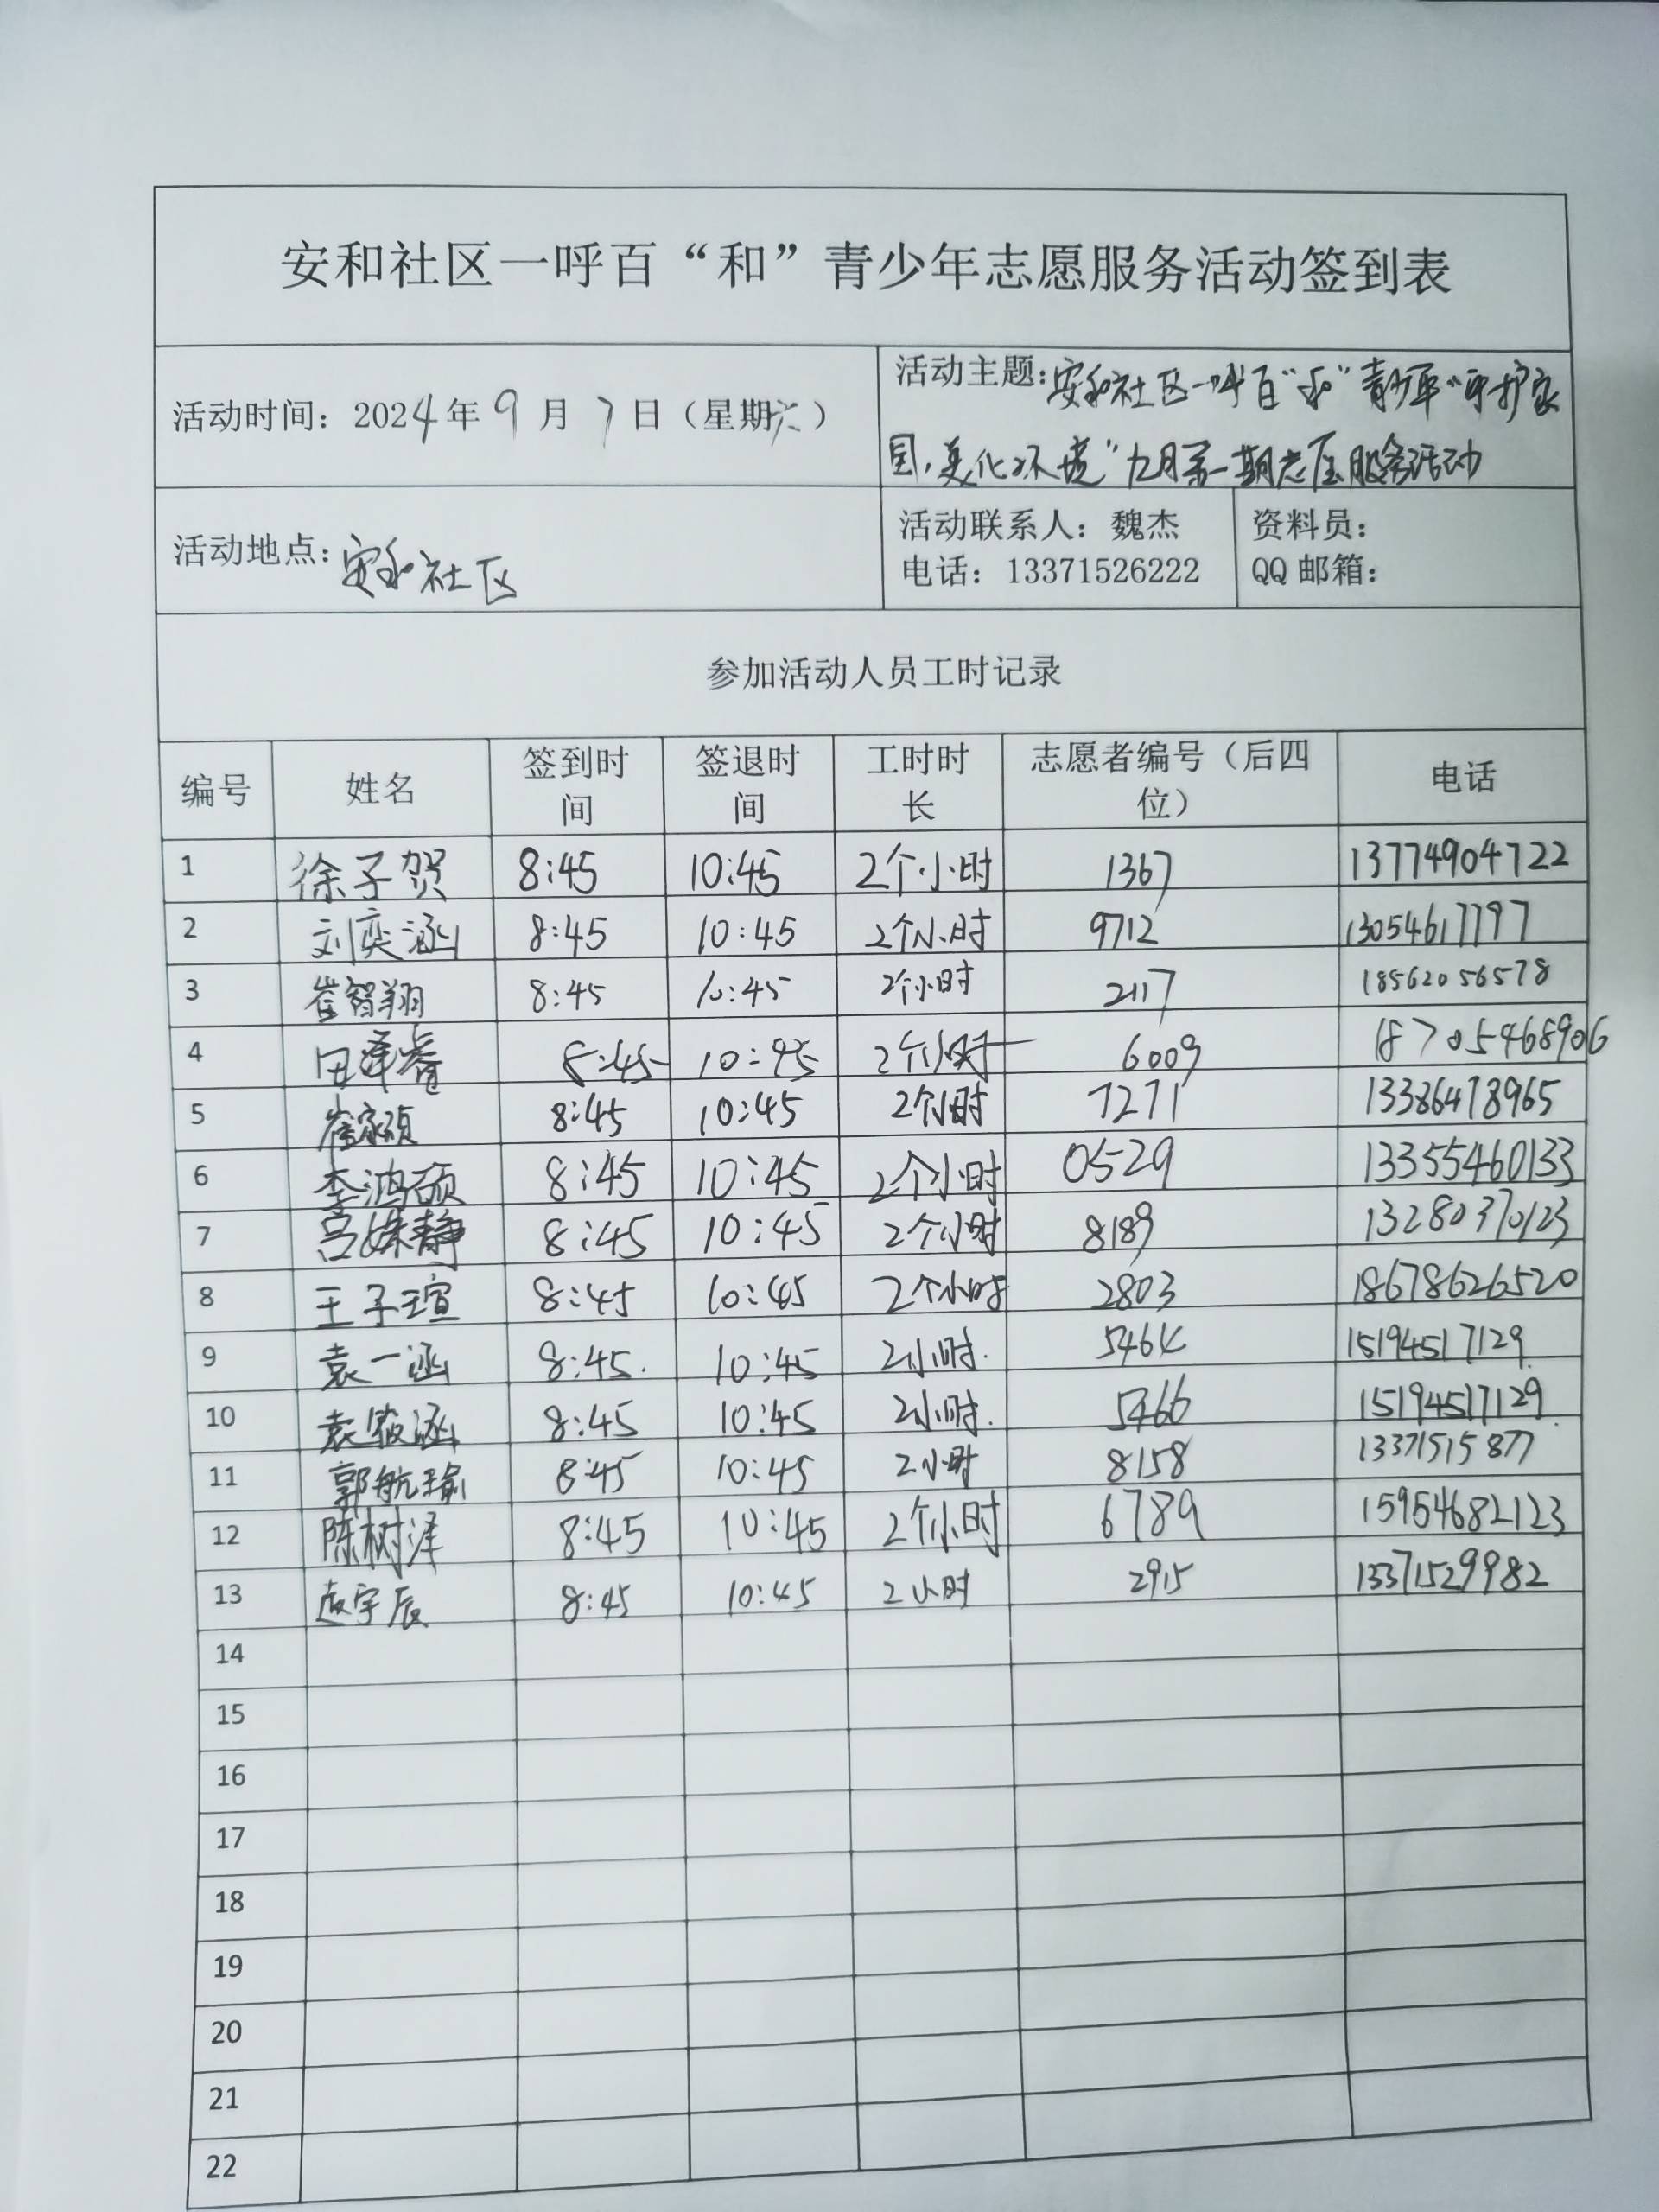 安和社区一呼百“和”青少年志愿服务活动签到表
活动时间：2024年9月7日（星期六）
活动主题：安和社区一呼百“和”青少年“守护家
园，美化环境”九月第一期志愿服务活动
活动地点：安和社区
活动联系人：魏杰
电话：13371526222
资料员：
QQ邮箱：
参加活动人员工时记录
编号 姓名 签到时间 签退时间 工时时长 志愿者编号（后四位） 电话
1 徐子贺 8:45 10:45 2个小时 1367 13774904722
2 刘奕涵 8:45 10:45 2个小时 9712 13054617797
3 崔智翔 8:45 10:45 2个小时 2117 18562056578
4 田泽睿 8:45 10:45 2个小时 6009 18705468906
5 崔家硕 8:45 10:45 2个小时 7271 13386478965
6 李鸿硕 8:45 10:45 2个小时 0529 13355460133
7 吕姝静 8:45 10:45 2个小时 8189 13280370123
8 王子瑄 8:45 10:45 2个小时 2803 18678626520
9 袁一涵 8:45. 10:45 2小时. 5464 15194517129
10 袁 涵 8:45 10:45 2小时. 5466 15194517129
11 郭航瑜 8:45 10:45 2小时 8158 13371515877
12 陈树泽 8:45 10:45 2个小时 6789 15954682123
13 宇辰 8:45 10:45 2小时 2915 13371529982
14
15
16
17
18
19
20
21
22